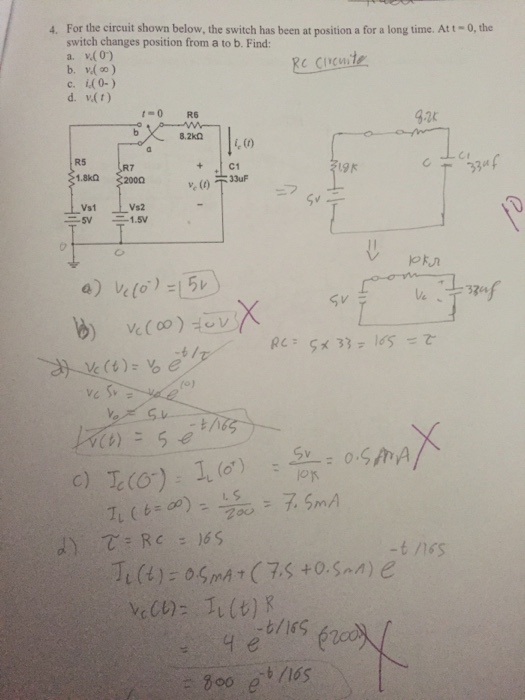 4. For the circuit shown below, the switch has been at position a for a long time. At t = 0, the
switch changes position from a to b. Find:
a. vc(0-)
b. vc(∞)
c. ic(0-)
d. vc(t)
RC Circuits
t=0
R6
8.2kΩ
b
a
ic(t)
R5
1.8kΩ
R7
200Ω
+
vc(t)
-
C1
33uF
Vs1
5V
Vs2
1.5V
0
0
8.2k
1.8k
5V
C
C1
33uf
=>
10kΩ
5V
Vc
33uf
10
a) Vc(0-) = 5V
b) Vc(∞) = 0V X
RC = 5 x 33 = 165 = τ
d) Vc(t) = V0 e^-t/τ
Vc 5v = V0 e^(0)
V0 = 5v
V(t) = 5 e^-t/165
c) Ic(0-) = IL(0+) = 5v/10k = 0.5mA X
IL(t=∞) = 1.5/200 = 7.5mA
d) τ = RC = 165
IL(t) = 0.5mA + (7.5 + 0.5mA) e^-t/165
Vc(t) = IL(t) R
= 4 e^-t/165 (200) X
= 800 e^-t/165